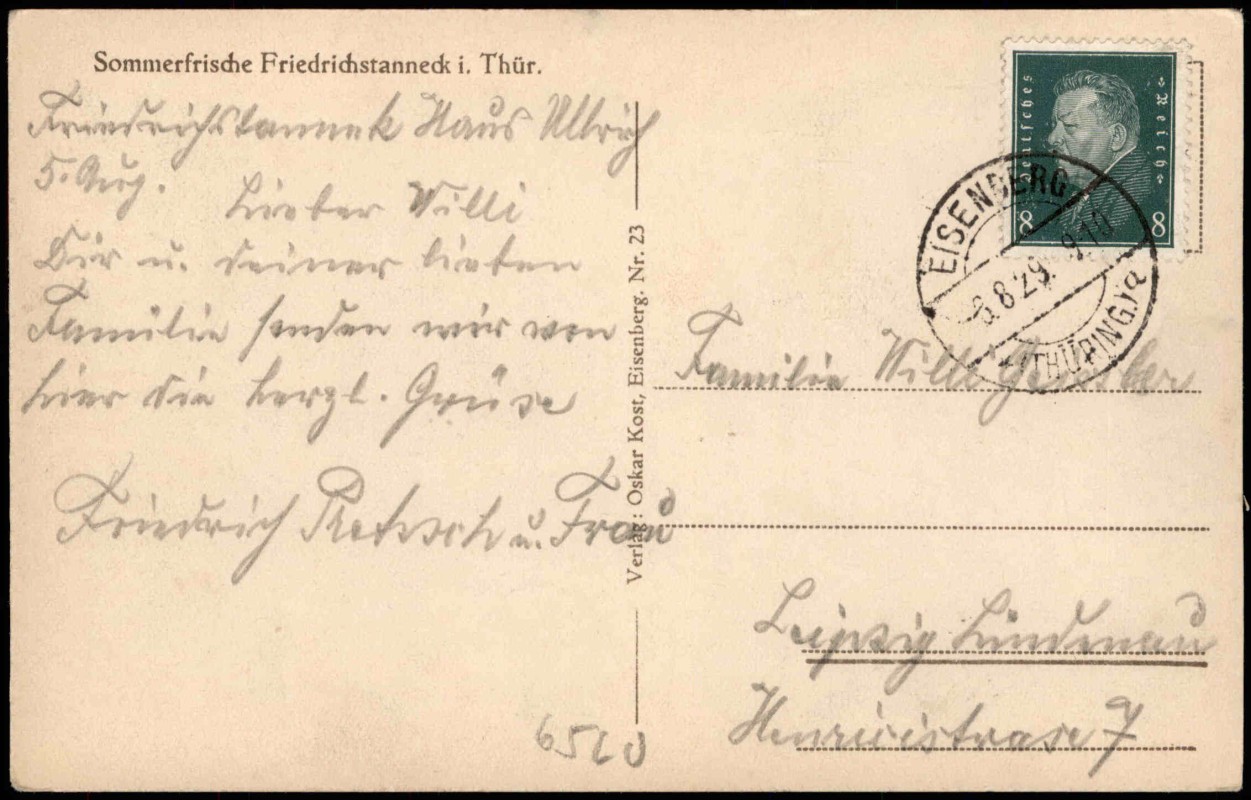 Sommerfrische Friedrichstanneck i. Thür.
Friedrichstannek Haus Ullrich
5. Aug.
Lieber Willi
Dir u. deiner lieben
Familie senden wir von
hier die herzl. Grüse
Friedrich u. Frau
Verlag: Oskar Kost, Eisenberg. Nr. 23
Deutsches Reich
8 8
EISENBERG
6.8.29. 9-10
(THÜRING.) a
Familie Willi
Leipzig Lindenau
Henricistrase 7
65